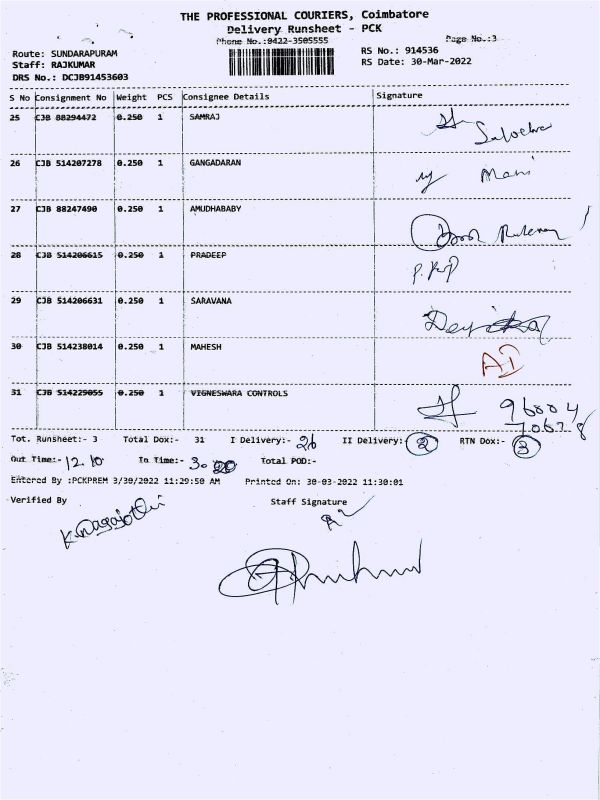 THE PROFESSIONAL COURIERS, Coimbatore
Delivery Runsheet - PCK
Phone No.:0422-3505555
Page No.:3
Route: SUNDARAPURAM
RS No.: 914536
Staff: RAJKUMAR
RS Date: 30-Mar-2022
DRS No.: DCJB91453603
S No Consignment No Weight PCS Consignee Details Signature
25 CJB 88294472 0.250 1 SAMRAJ
26 CJB 514207278 0.250 1 GANGADARAN Mani
27 CJB 88247490 0.250 1 AMUDHABABY
28 CJB 514206615 0.250 1 PRADEEP
29 CJB 514206631 0.250 1 SARAVANA
30 CJB 514238014 0.250 1 MAHESH
31 CJB 514229055 0.250 1 VIGNESWARA CONTROLS 96004
70678
Tot. Runsheet:- 3 Total Dox:- 31 I Delivery:- 26 II Delivery:- 2 RTN Dox:- 3
Out Time:- 12.10 In Time:- 3.20 Total POD:-
Entered By :PCKPREM 3/30/2022 11:29:50 AM Printed On: 30-03-2022 11:30:01
Verified By Staff Signature
K.Nagajothi